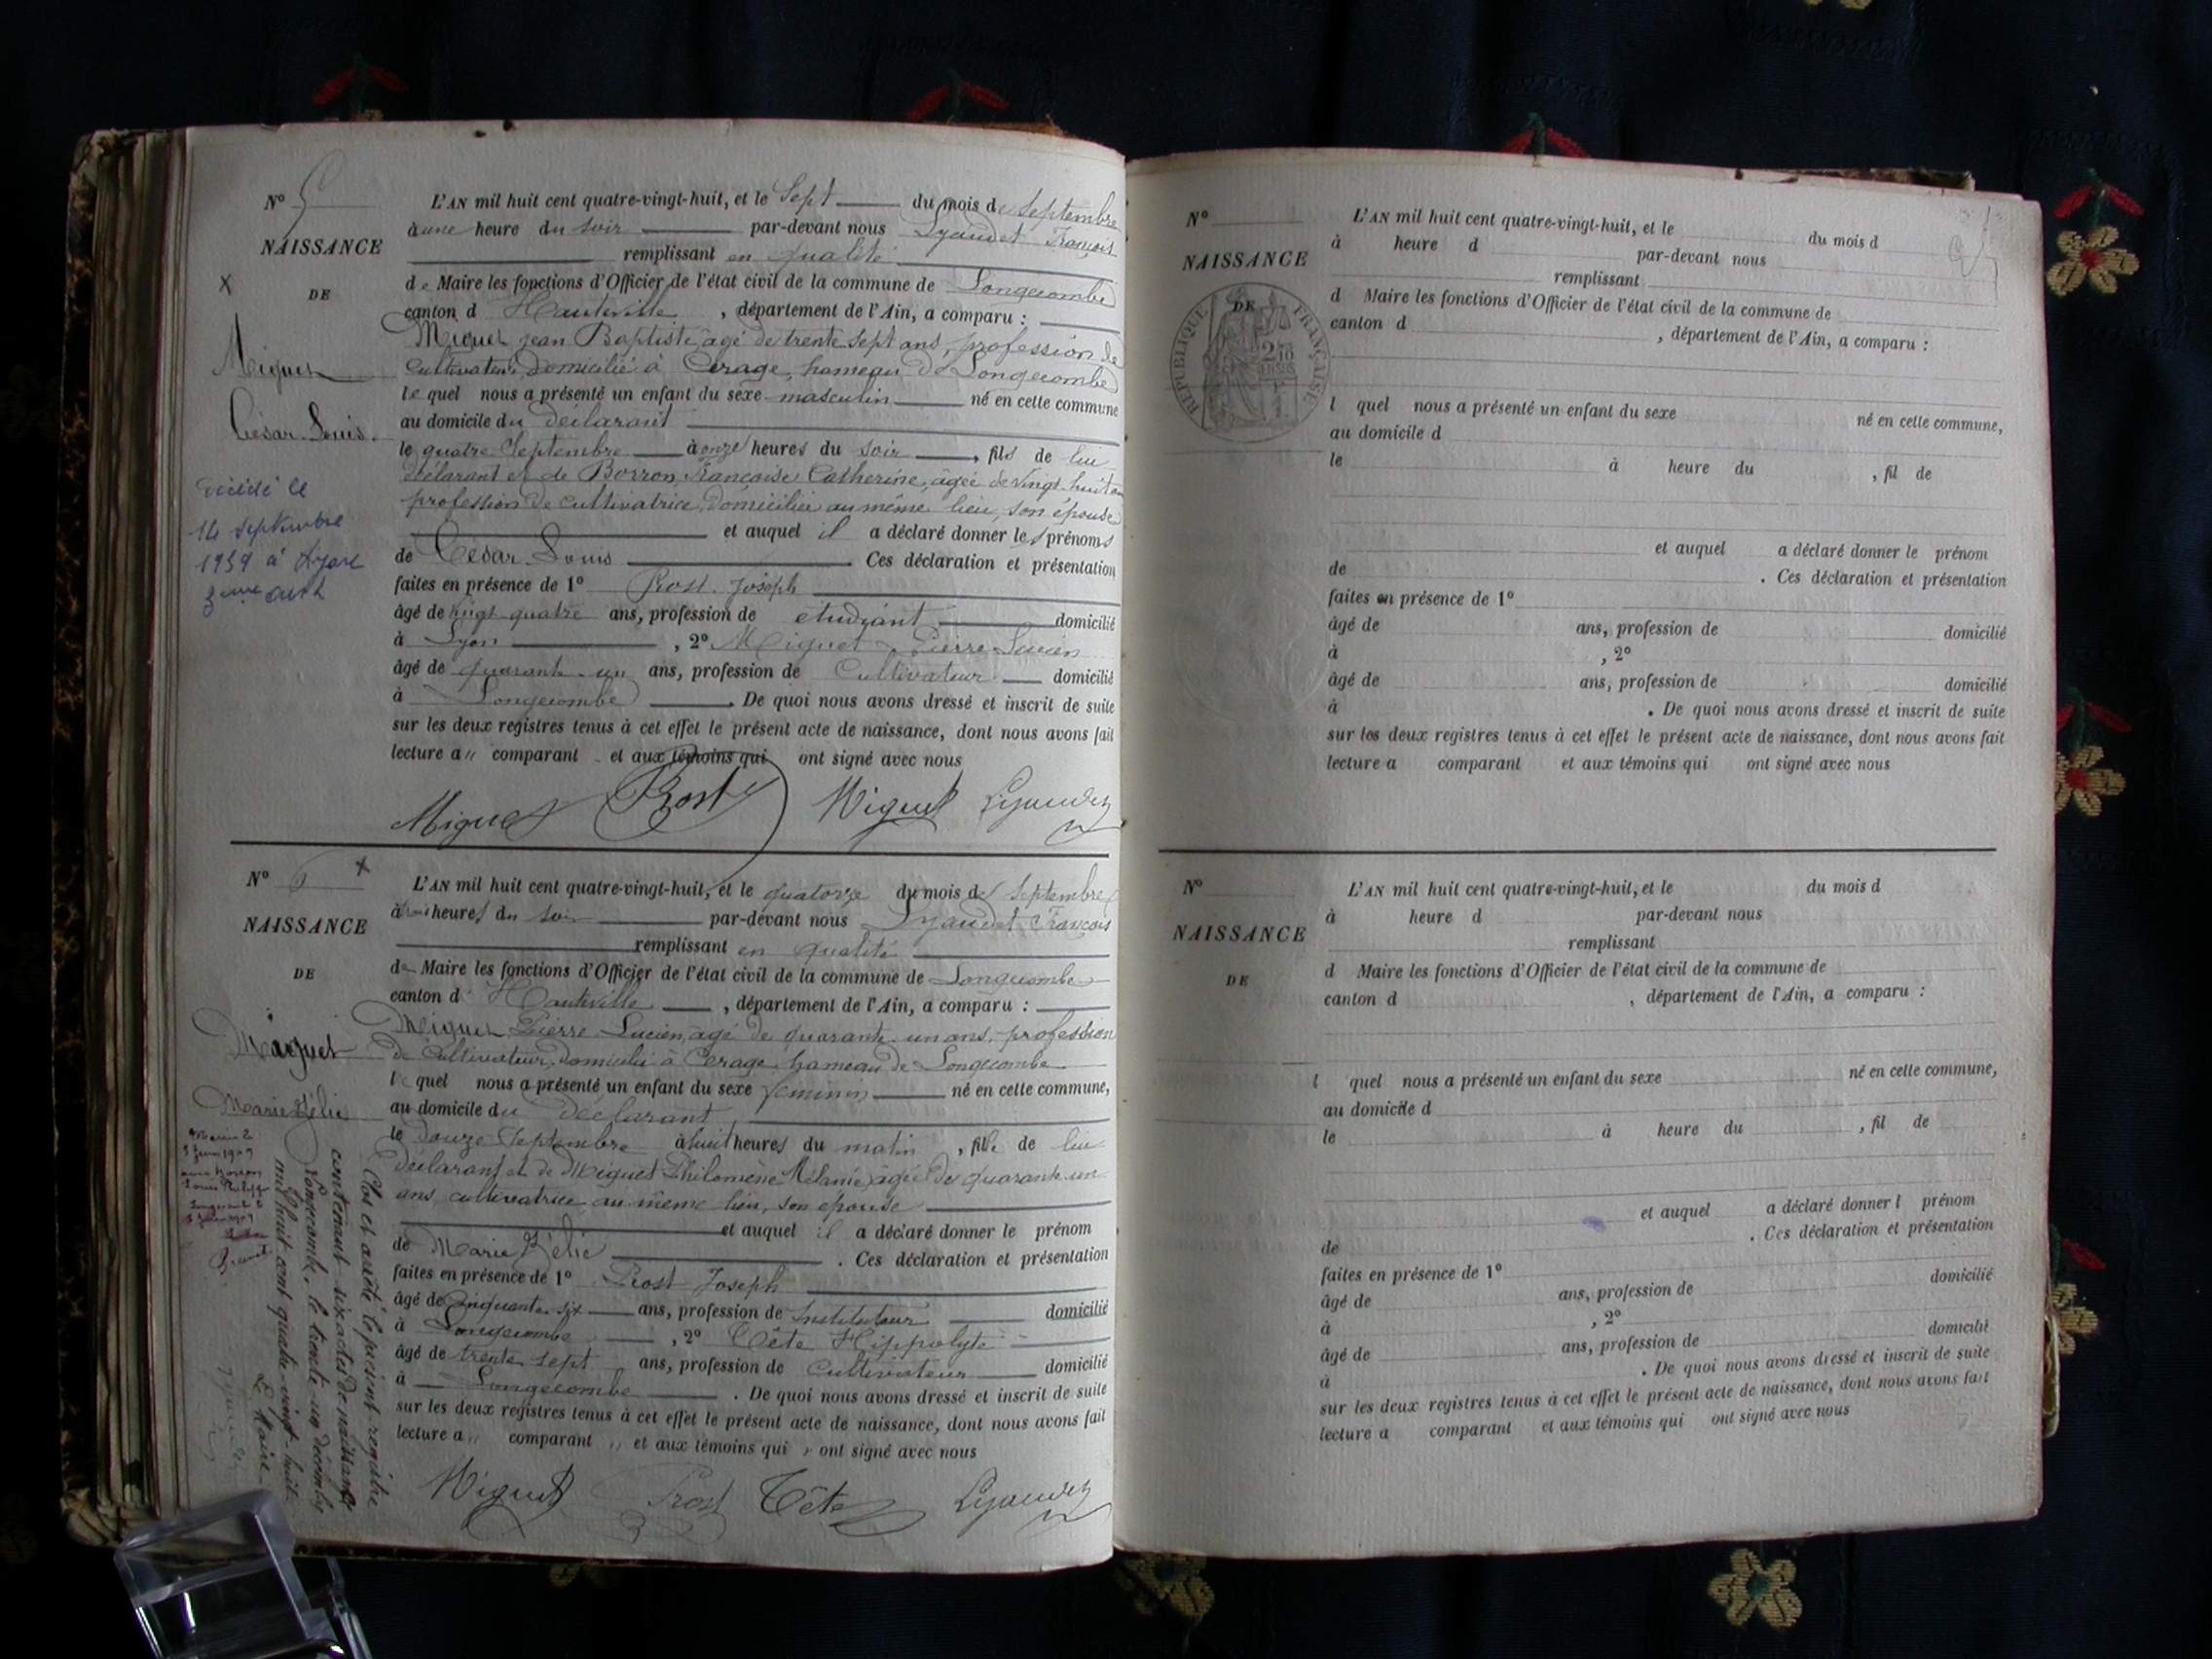 N° 5
NAISSANCE
DE
Miguet
César Louis
décédé le
14 septembre
1959 à Lyon
3eme arrt
L'AN mil huit cent quatre-vingt-huit, et le Sept du mois de Septembre
à une heure du soir par-devant nous Lyaudet François
remplissant en qualité
de Maire les fonctions d'Officier de l'état civil de la commune de Longecombe
canton d Hauteville, département de l'Ain, a comparu :
Miguet Jean Baptiste âgé de trente sept ans, profession de
cultivateur, domicilié à Cerage, hameau de Longecombe
lequel nous a présenté un enfant du sexe masculin né en cette commune
au domicile du déclarant
le quatre Septembre à onze heures du soir, fils de lui
déclarant et de Borron Françoise Catherine, âgée de vingt huit ans
profession de cultivatrice, domiciliée au même lieu, son épouse
et auquel il a déclaré donner les prénoms
de César Louis Ces déclaration et présentation
faites en présence de 1° Prost Joseph
âgé de vingt quatre ans, profession de étudiant domicilié
à Lyon, 2° Miguet Pierre Lucien
âgé de quarante un ans, profession de Cultivateur domicilié
à Longecombe. De quoi nous avons dressé et inscrit de suite
sur les deux registres tenus à cet effet le présent acte de naissance, dont nous avons fait
lecture a " comparant et aux témoins qui ont signé avec nous
Miguet Prost Miguet Lyaudet
N° 6
NAISSANCE
DE
Miguet
Marie Zélie
L'AN mil huit cent quatre-vingt-huit, et le quatorze du mois de Septembre
à trois heures du soir par-devant nous Lyaudet François
remplissant en qualité
de Maire les fonctions d'Officier de l'état civil de la commune de Longecombe
canton d Hauteville, département de l'Ain, a comparu :
Miguet Pierre Lucien, âgé de quarante un ans, profession
de Cultivateur, domicilié à Cerage, hameau de Longecombe
lequel nous a présenté un enfant du sexe féminin né en cette commune,
au domicile du déclarant
le douze Septembre à huit heures du matin, fille de lui
déclarant et de Miguet Philomène Mélanie, âgée de quarante un
ans, cultivatrice au même lieu, son épouse
et auquel il a déclaré donner le prénom
de Marie Zélie. Ces déclaration et présentation
faites en présence de 1° Prost Joseph
âgé de Cinquante six ans, profession de Instituteur domicilié
à Longecombe, 2° Tête Hippolyte
âgé de trente sept ans, profession de Cultivateur domicilié
à Longecombe. De quoi nous avons dressé et inscrit de suite
sur les deux registres tenus à cet effet le présent acte de naissance, dont nous avons fait
lecture a " comparant " et aux témoins qui ont signé avec nous
Miguet Prost Tête Lyaudet
Clos et arrêté le présent registre
contenant six actes de naissance
Longecombe, le trente-un décembre
mil huit cent quatre-vingt-huit.
Le Maire
N°
NAISSANCE
DE
RÉPUBLIQUE FRANÇAISE
L'AN mil huit cent quatre-vingt-huit, et le du mois d
à heure d par-devant nous
remplissant
d Maire les fonctions d'Officier de l'état civil de la commune de
canton d , département de l'Ain, a comparu :
l quel nous a présenté un enfant du sexe né en cette commune,
au domicile d
le à heure du , fil de
et auquel a déclaré donner le prénom
de . Ces déclaration et présentation
faites en présence de 1°
âgé de ans, profession de domicilié
à , 2°
âgé de ans, profession de domicilié
à . De quoi nous avons dressé et inscrit de suite
sur les deux registres tenus à cet effet le présent acte de naissance, dont nous avons fait
lecture a comparant et aux témoins qui ont signé avec nous
N°
NAISSANCE
DE
L'AN mil huit cent quatre-vingt-huit, et le du mois d
à heure d par-devant nous
remplissant
d Maire les fonctions d'Officier de l'état civil de la commune de
canton d , département de l'Ain, a comparu :
l quel nous a présenté un enfant du sexe né en cette commune,
au domicile d
le à heure du , fil de
et auquel a déclaré donner l prénom
de . Ces déclaration et présentation
faites en présence de 1°
âgé de ans, profession de domicilié
à , 2°
âgé de ans, profession de domicilié
à . De quoi nous avons dressé et inscrit de suite
sur les deux registres tenus à cet effet le présent acte de naissance, dont nous avons fait
lecture a comparant et aux témoins qui ont signé avec nous